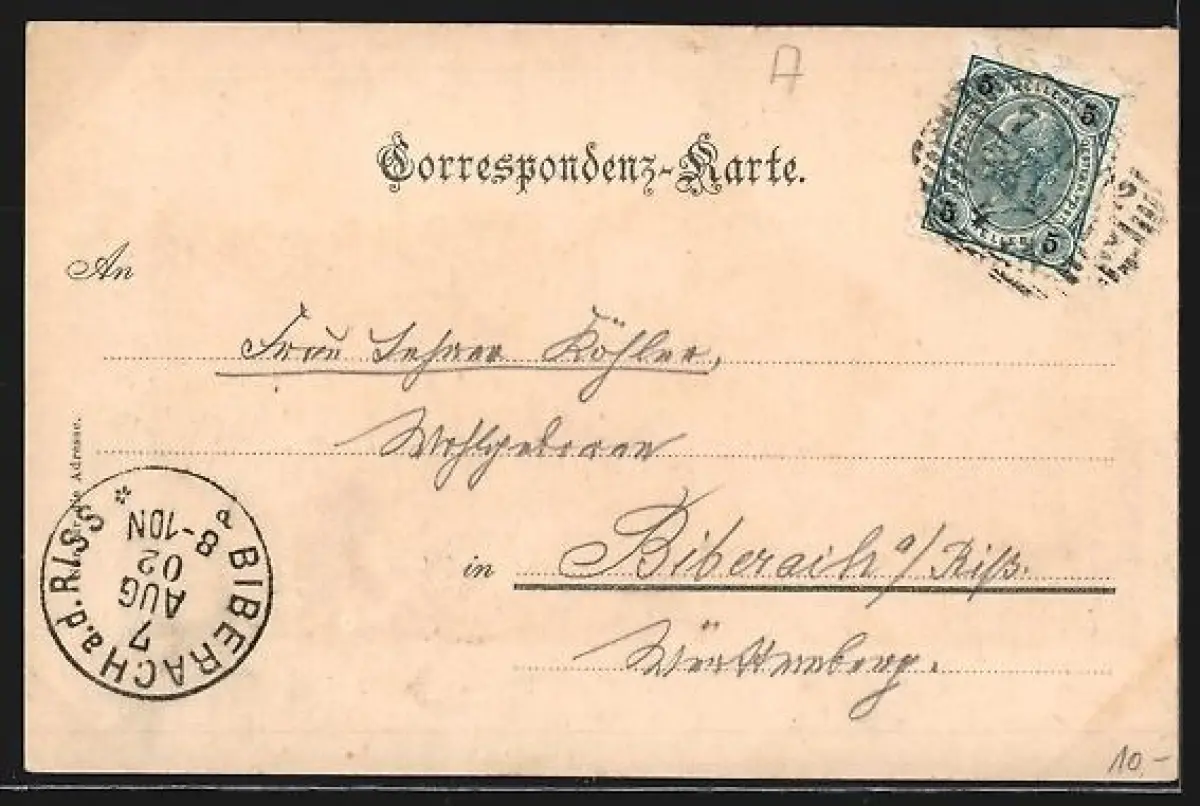 A
Correspondenz-Karte.
5 5 5 5
An
Frau Lehrer Köhler,
Wohlgeboren
in Biberach a/Riß.
Württemberg.
Adresse.
BIBERACH a.d. RISS
7
AUG
02
8-10N
a
10.-